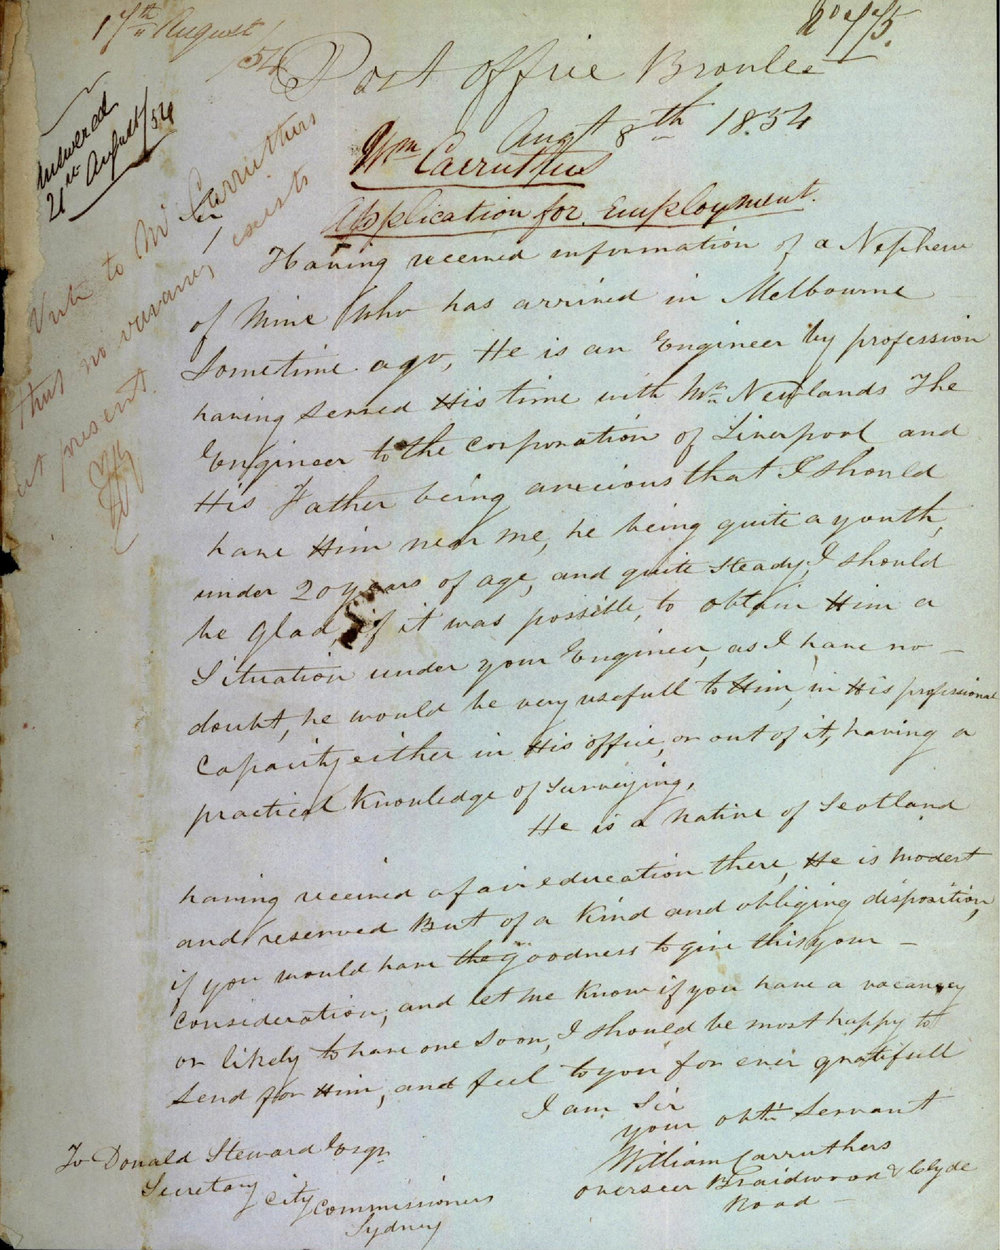 17th August
/54
Answered
21st August /54
Write to Mr Carruthers
that no vacancy exists
at present.
Post office Broulee
Augt 8th 1854
Wm Carruthers
Application for employment.
Sir
Having received information of a Nephew
of Mine Who has arrived in Melbourne
Sometime ago, He is an Engineer by profession
having served His time with Mr. Newlands The
Engineer to the corporation of Liverpool and
His Father being anxious that I should
have Him near me, he being quite a youth,
under 20 years of age, and quite steady, I should
be glad, if it was possible, to obtain Him a
Situation under your Engineer, as I have no
doubt, he would be very usefull to Him, in His professional
Capacity either in His office, or out of it, having a
practical Knowledge of Surveying,
He is a Native of Scotland
having received a fair education there, He is modest
and reserved But of a Kind and obliging disposition,
if you would have the goodness to give this your
consideration, and let me Know if you have a vacancy
or likely to have one soon, I should be most happy to
send for Him, and feel to you for ever gratifull
I am Sir
your obtn Servant
William Carruthers
overseer Braidwood & Clyde
Road
To Donald Steward Esqr
Secretary
City Commissioners
Sydney